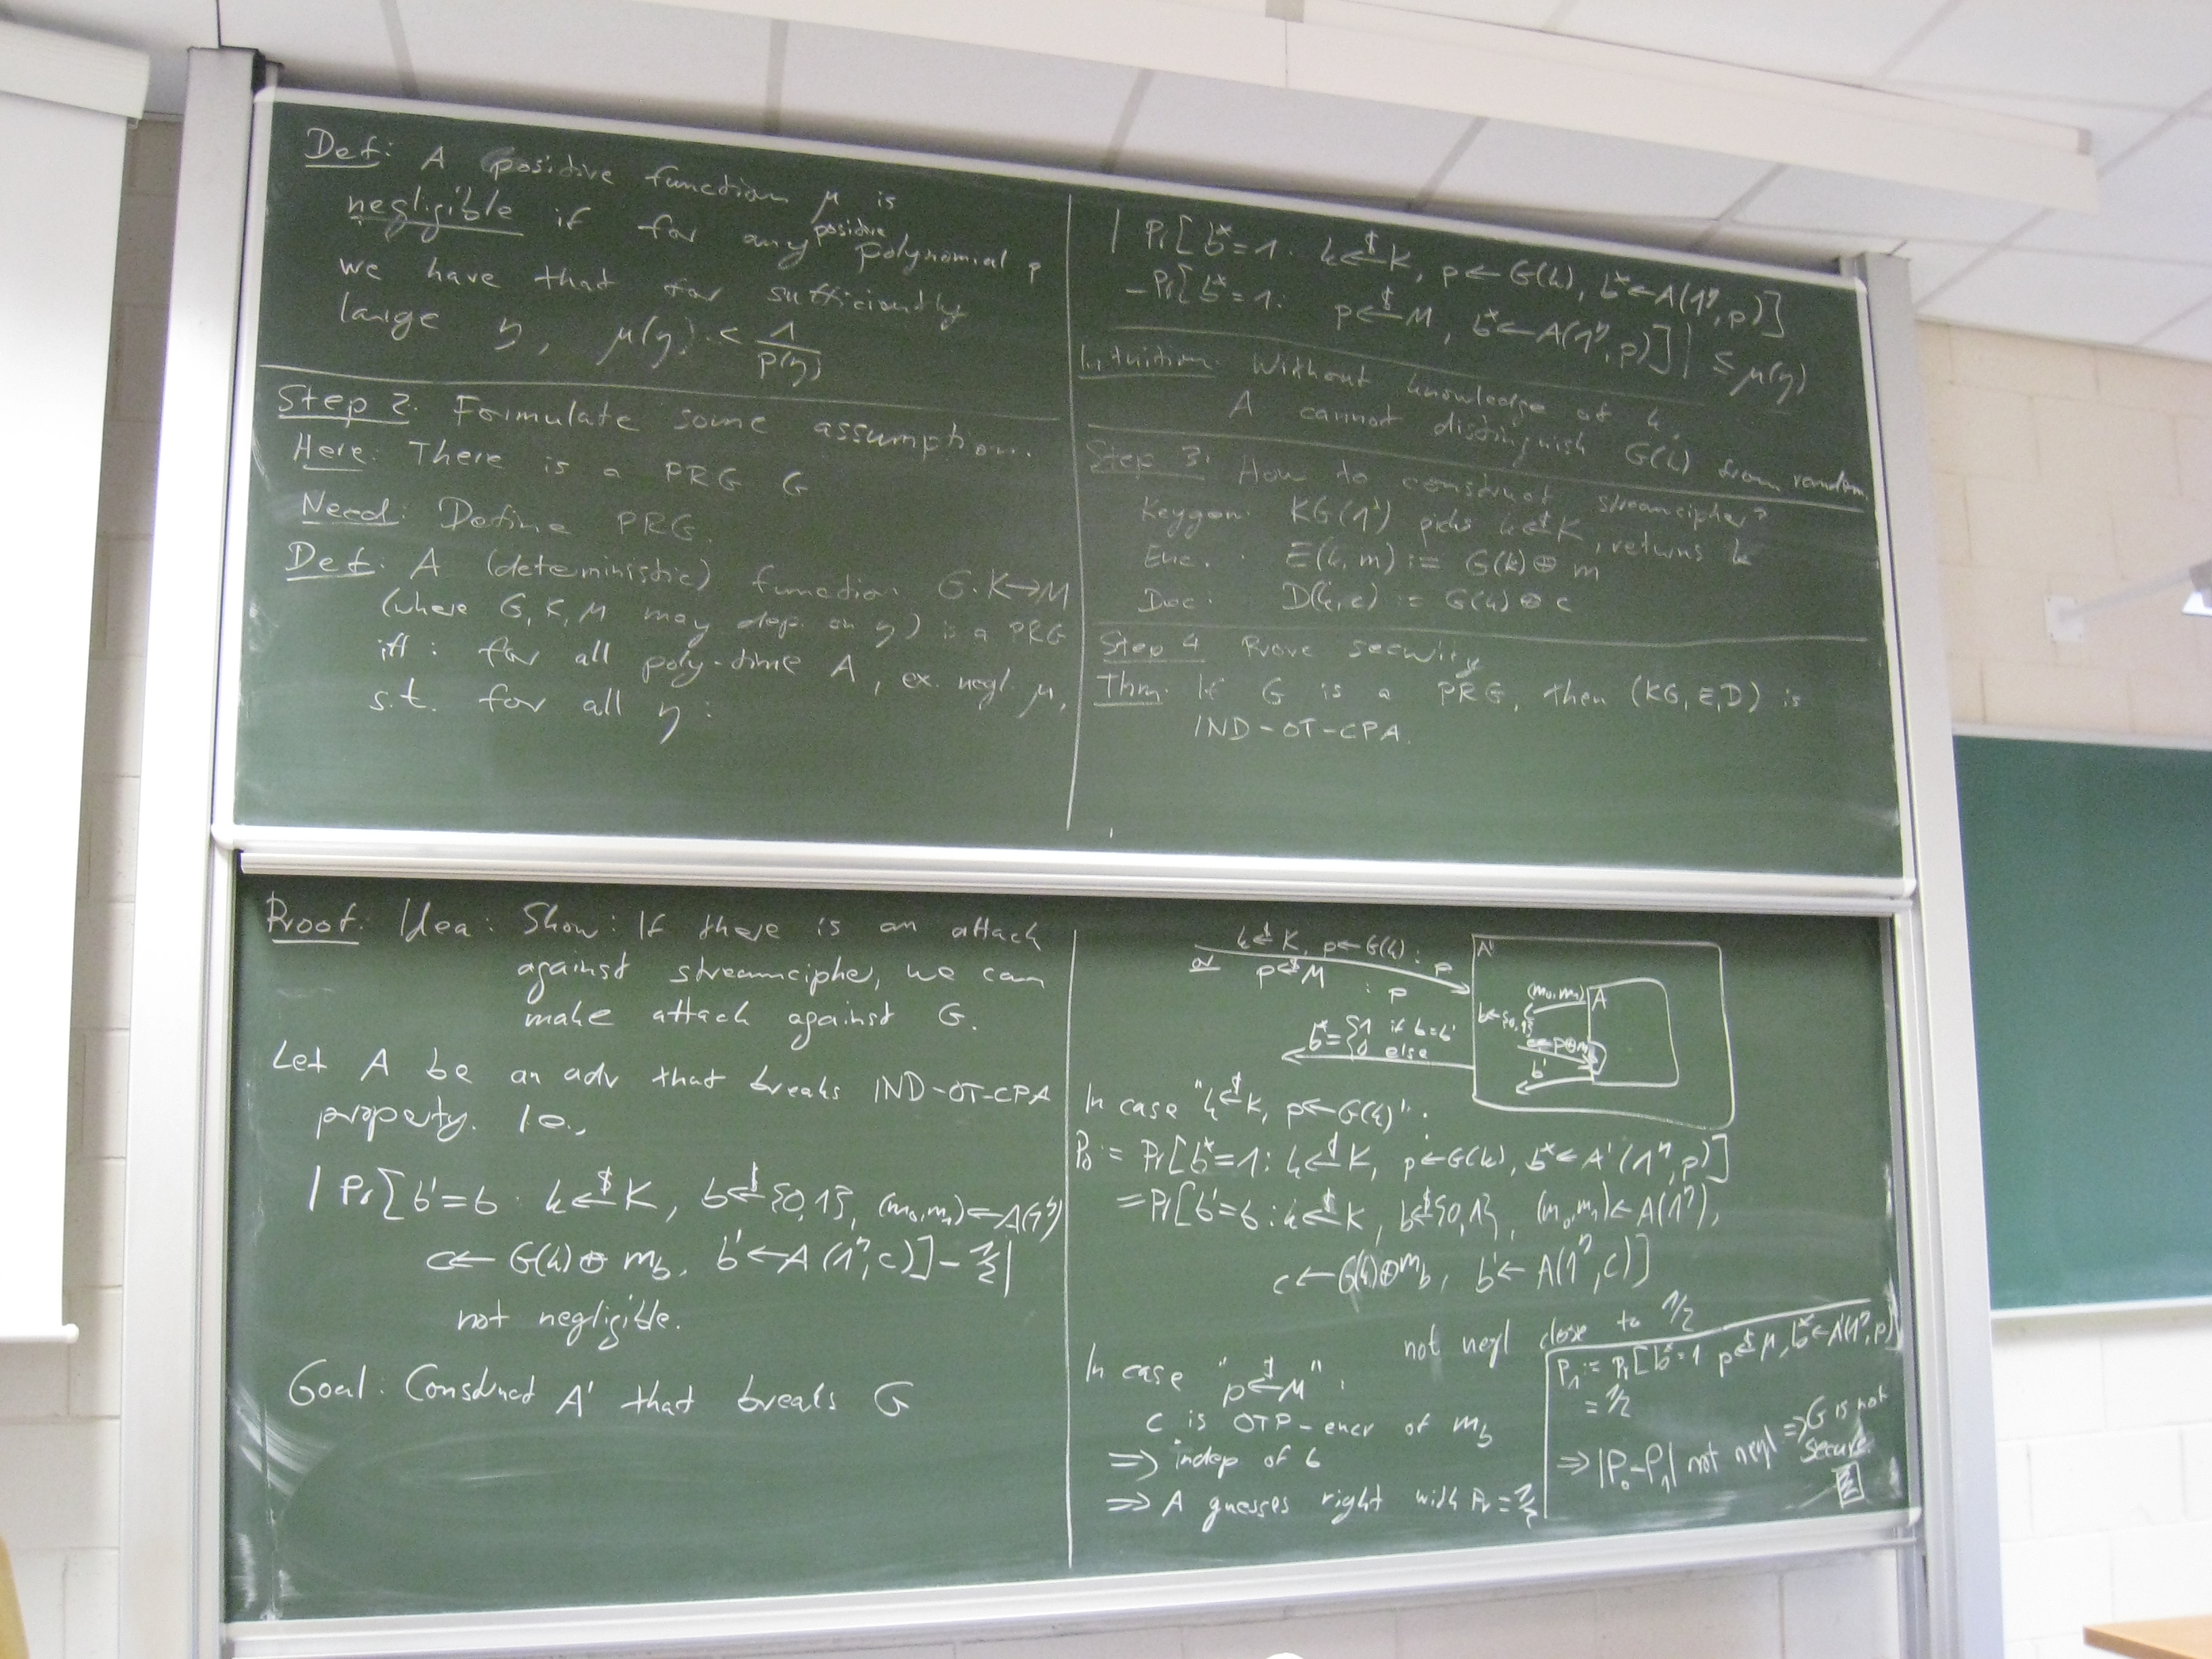 Def: A positive function μ is
negligible if for any positive polynomial p
we have that for sufficiently
large η, μ(η) < 1/p(η)
Step 2: Formulate some assumption.
Here: There is a PRG G
Need: Define PRG.
Def: A (deterministic) function G: K→M
(where G, K, M may dep. on η) is a PRG
iff: for all poly-time A, ex. negl. μ,
s.t. for all η:
| Pr[b*=1: k ←$ K, p ← G(k), b* ← A(1^η, p)]
- Pr[b*=1: p ←$ M, b* ← A(1^η, p)] | ≤ μ(η)
Intuition: Without knowledge of k,
A cannot distinguish G(k) from random.
Step 3: How to construct streamcipher?
Keygen: KG(1^η) picks k ←$ K, returns k
Enc.: E(k, m) := G(k) ⊕ m
Dec: D(k, c) := G(k) ⊕ c
Step 4 Prove security
Thm: If G is a PRG, then (KG, E, D) is
IND-OT-CPA.
Proof: Idea: Show: If there is an attack
against streamcipher, we can
make attack against G.
Let A be an adv that breaks IND-OT-CPA
property. I.e.,
| Pr[b'=b: k ←$ K, b ←$ {0,1}, (m₀,m₁) ← A(1^η)
c ← G(k) ⊕ m_b, b' ← A(1^η, c)] - 1/2 |
not negligible.
Goal: Construct A' that breaks G
k ←$ K, p ← G(k): p
or p ←$ M : p
A'
A
(m₀,m₁)
b ← {0,1}
c ← p⊕m_b
b'
b* = {1 if b=b'
0 else
In case "k ←$ K, p ← G(k)":
P₀ := Pr[b*=1: k ←$ K, p ← G(k), b* ← A'(1^η, p)]
= Pr[b'=b: k ←$ K, b ←$ {0,1}, (m₀,m₁) ← A(1^η),
c ← G(k)⊕m_b, b' ← A(1^η, c)]
not negl close to 1/2
In case "p ←$ M":
c is OTP-encr of m_b
⇒ indep of b
⇒ A guesses right with Pr = 1/2
P₁ := Pr[b*=1 p ←$ M, b* ← A'(1^η, p)]
= 1/2
⇒ |P₀-P₁| not negl ⇒ G is not
secure